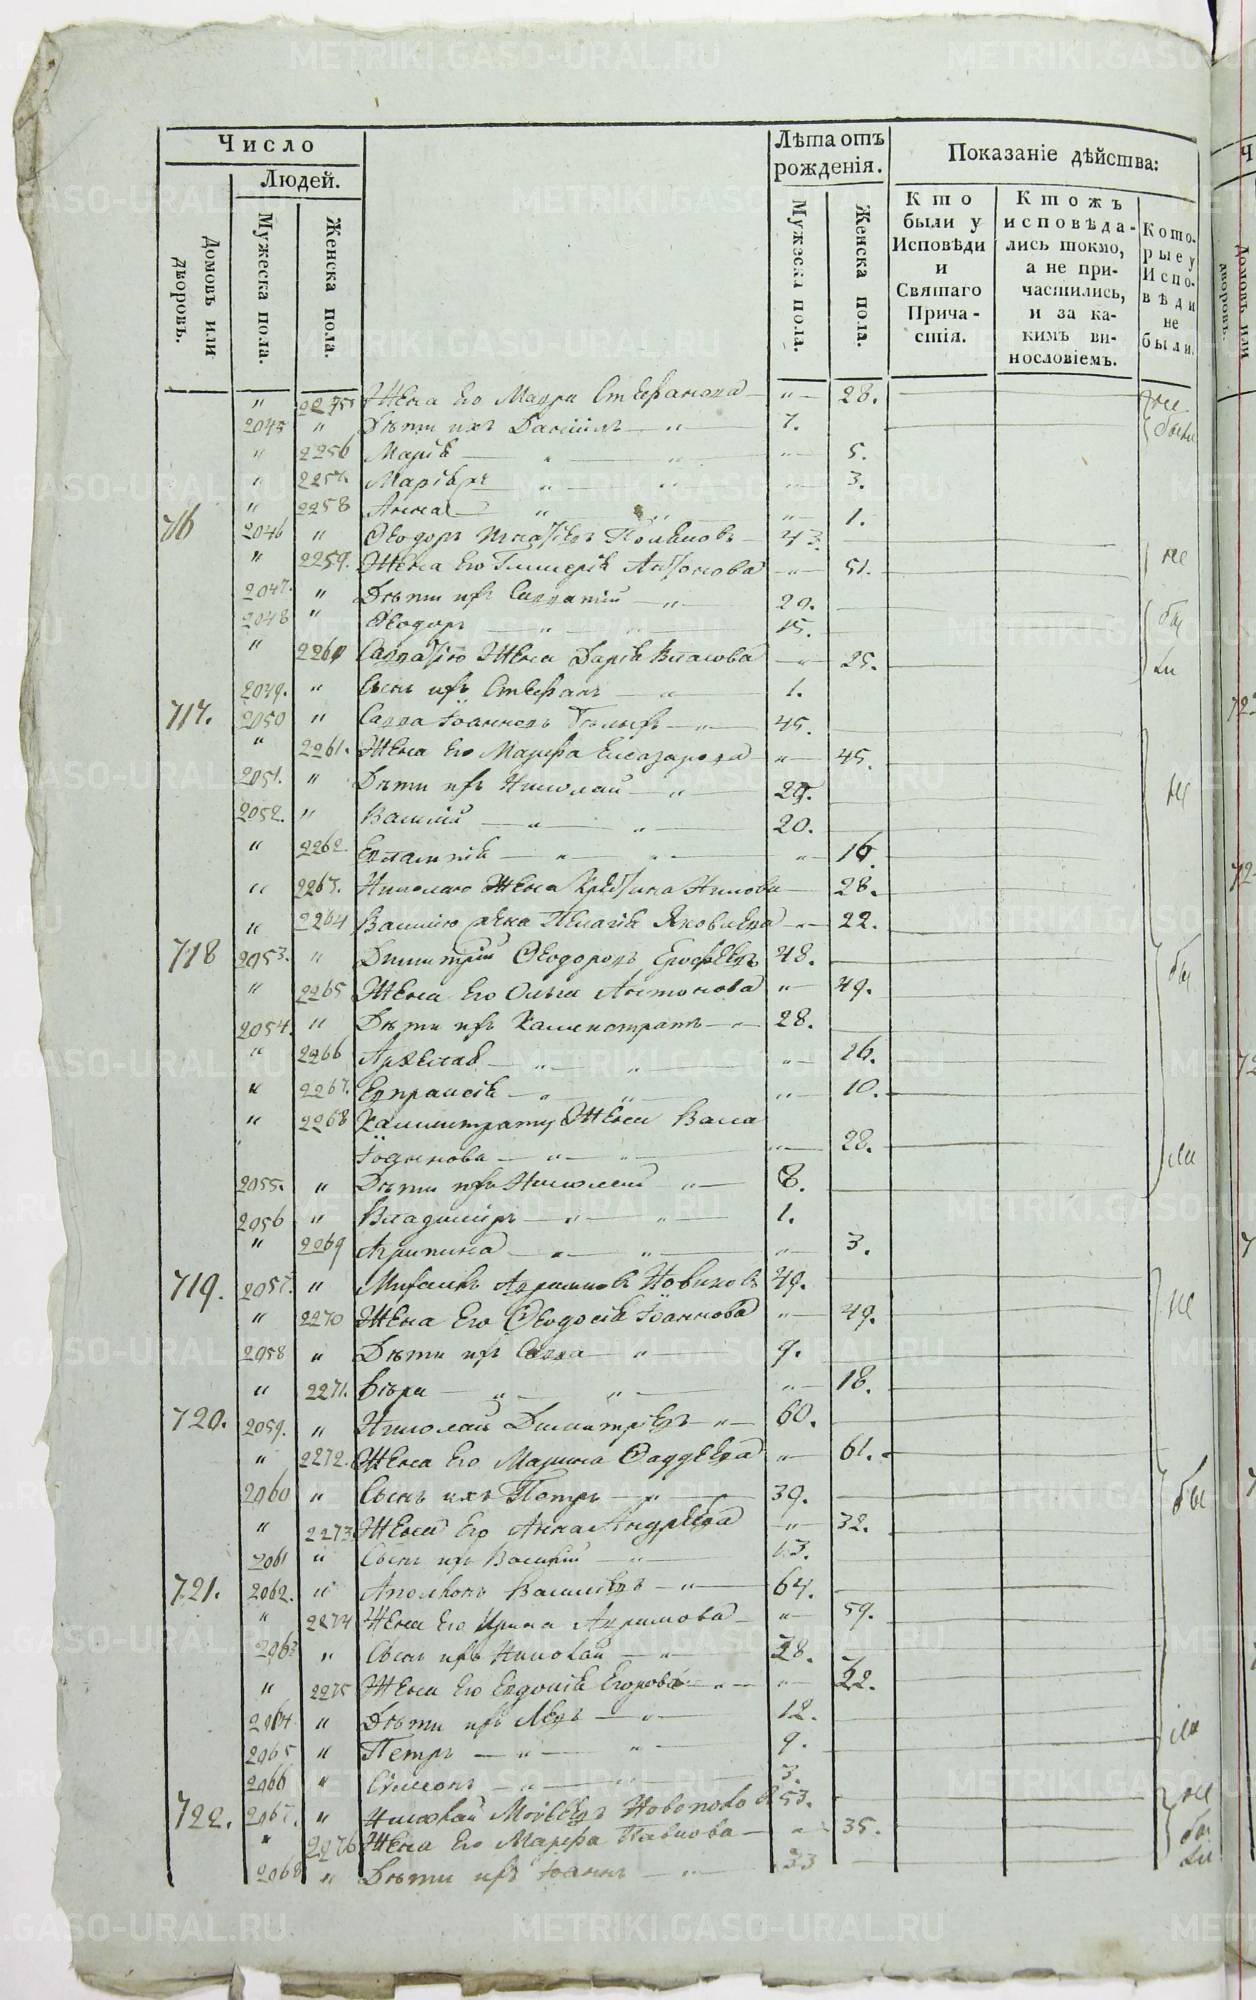 Число
Людей.
Домовъ или дворовъ.
Мужеска пола.
Женска пола.
Лѣта отъ рожденія.
Мужеска пола.
Женска пола.
Показаніе дѣйства:
Кто были у Исповѣди и Святаго Причастія.
Ктожъ исповѣдались токмо, а не причастились, и за какимъ винословіемъ.
Которые у Исповѣди не были.
" 2255 Жена Его Мавра Стефанова " 28. не
2045 " Дѣти ихъ Даніилъ " 7. были
" 2256 Марія " " " 5.
" 2257. " " " 3.
" 2258 Анна " " " 1.
716 2046 " Ѳеодоръ 43.
" 2259. Жена Его Гликерія Антонова " 51. не
2047. " Дѣти ихъ Савватій " 29.
2048 " Ѳеодоръ " " 15. бы
" 2260 Савватію Жена Дарія Власова " 25. ли
2049. " Сынъ ихъ Стефанъ " 1.
717. 2050 " Савва Іоанновъ " 45.
" 2261. Жена Его Марфа Елеазарова " 45.
2051. " Дѣти ихъ Николай " 29. не
2052. " Василій " " 20.
" 2262 " " " 16.
" 2263. Николаю Жена Христина Нилова 28.
" 2264 Василію жена Пелагія Яковлева " 22.
718 2053. " Димитрій Ѳеодоровъ Ерофѣевъ 48. бы
" 2265 Жена Его Ольга Антонова " 49.
2054. " Дѣти ихъ Каллистратъ " 28.
" 2266 " " " 26.
" 2267. Евпраксія " " " 10.
" 2268 Каллистрату Жена Васса
" " " 28. ли
2055. " Дѣти ихъ Николай " 8.
2056 " Владиміръ " " 1.
" 2269 Агрипина " " " 3.
719. 2057. " Михаилъ Новиковъ 49. не
" 2270 Жена Его Ѳеодосія Іоаннова " 49.
2058 " Дѣти ихъ Савва " 9.
" 2271. Вѣра " " " 18.
720. 2059. " Николай Димитріевъ " 60.
" 2272. Жена Его Марина Ѳаддѣева " 61.
2060 " Сынъ ихъ Петръ " 39. бы
" 2273. Жена Его Анна Андрѣева " 32.
2061 " Сынъ ихъ Василій " 13.
721. 2062. " Василіевъ " 64.
" 2274 Жена Его Ирина " 59.
2063 " Сынъ ихъ Николай " 28.
" 2275 Жена Его Евдокія Егорова " " 22.
2064 " Дѣти ихъ Левъ " 12. ли
2065 " Петръ " " 9.
2066 " Сѵмеонъ " " 3.
722. 2067. " Николай Моѵсѣевъ 53. не
" 2276 Жена Его Марфа Павлова " 35. бы
2068 " Дѣти ихъ Іоаннъ " 33 ли
METRIKI.GASO-URAL.RU